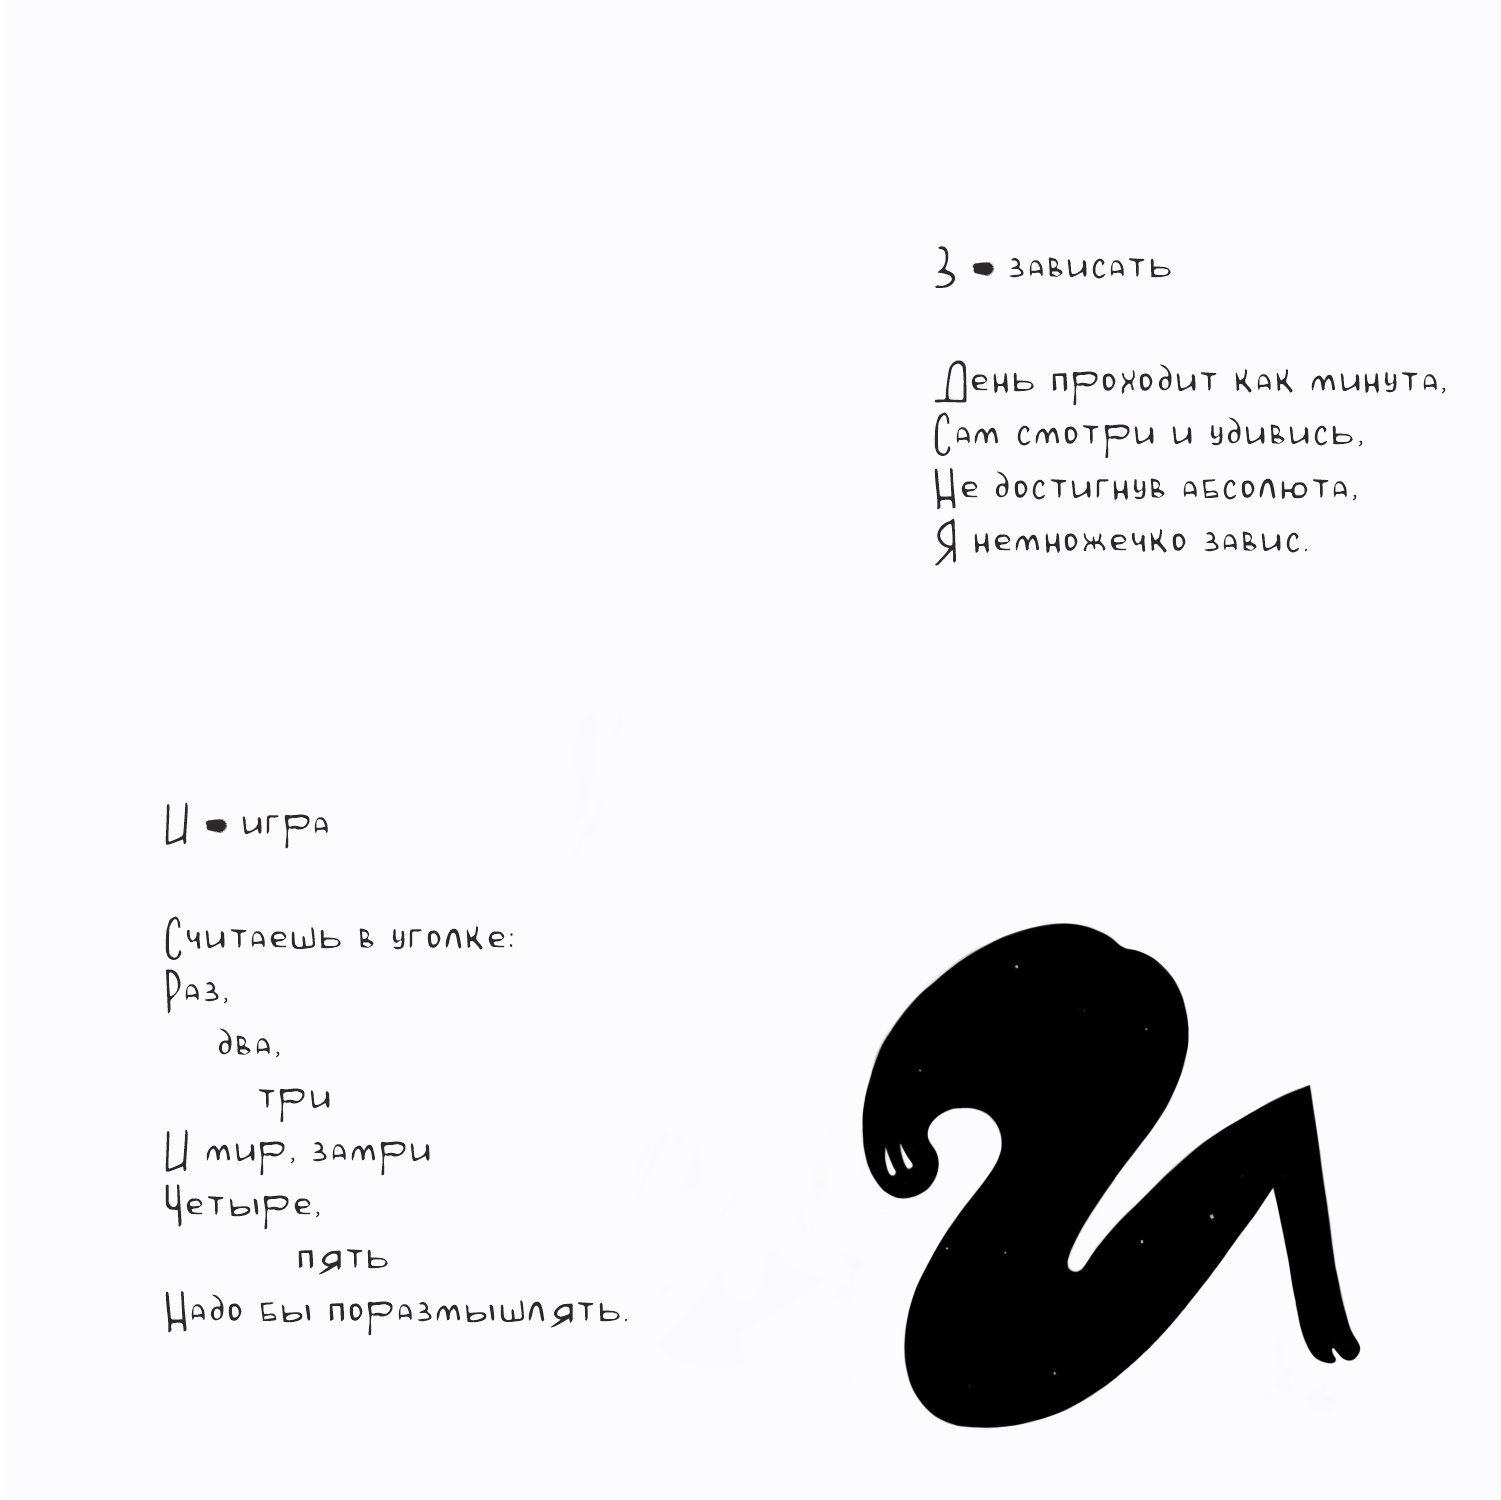 З - зависать
День проходит как минута,
Сам смотри и удивись,
Не достигнув абсолюта,
Я немножечко завис.
И - игра
Считаешь в уголке:
Раз,
два,
три
И мир, замри
Четыре,
пять
Надо бы поразмышлять.